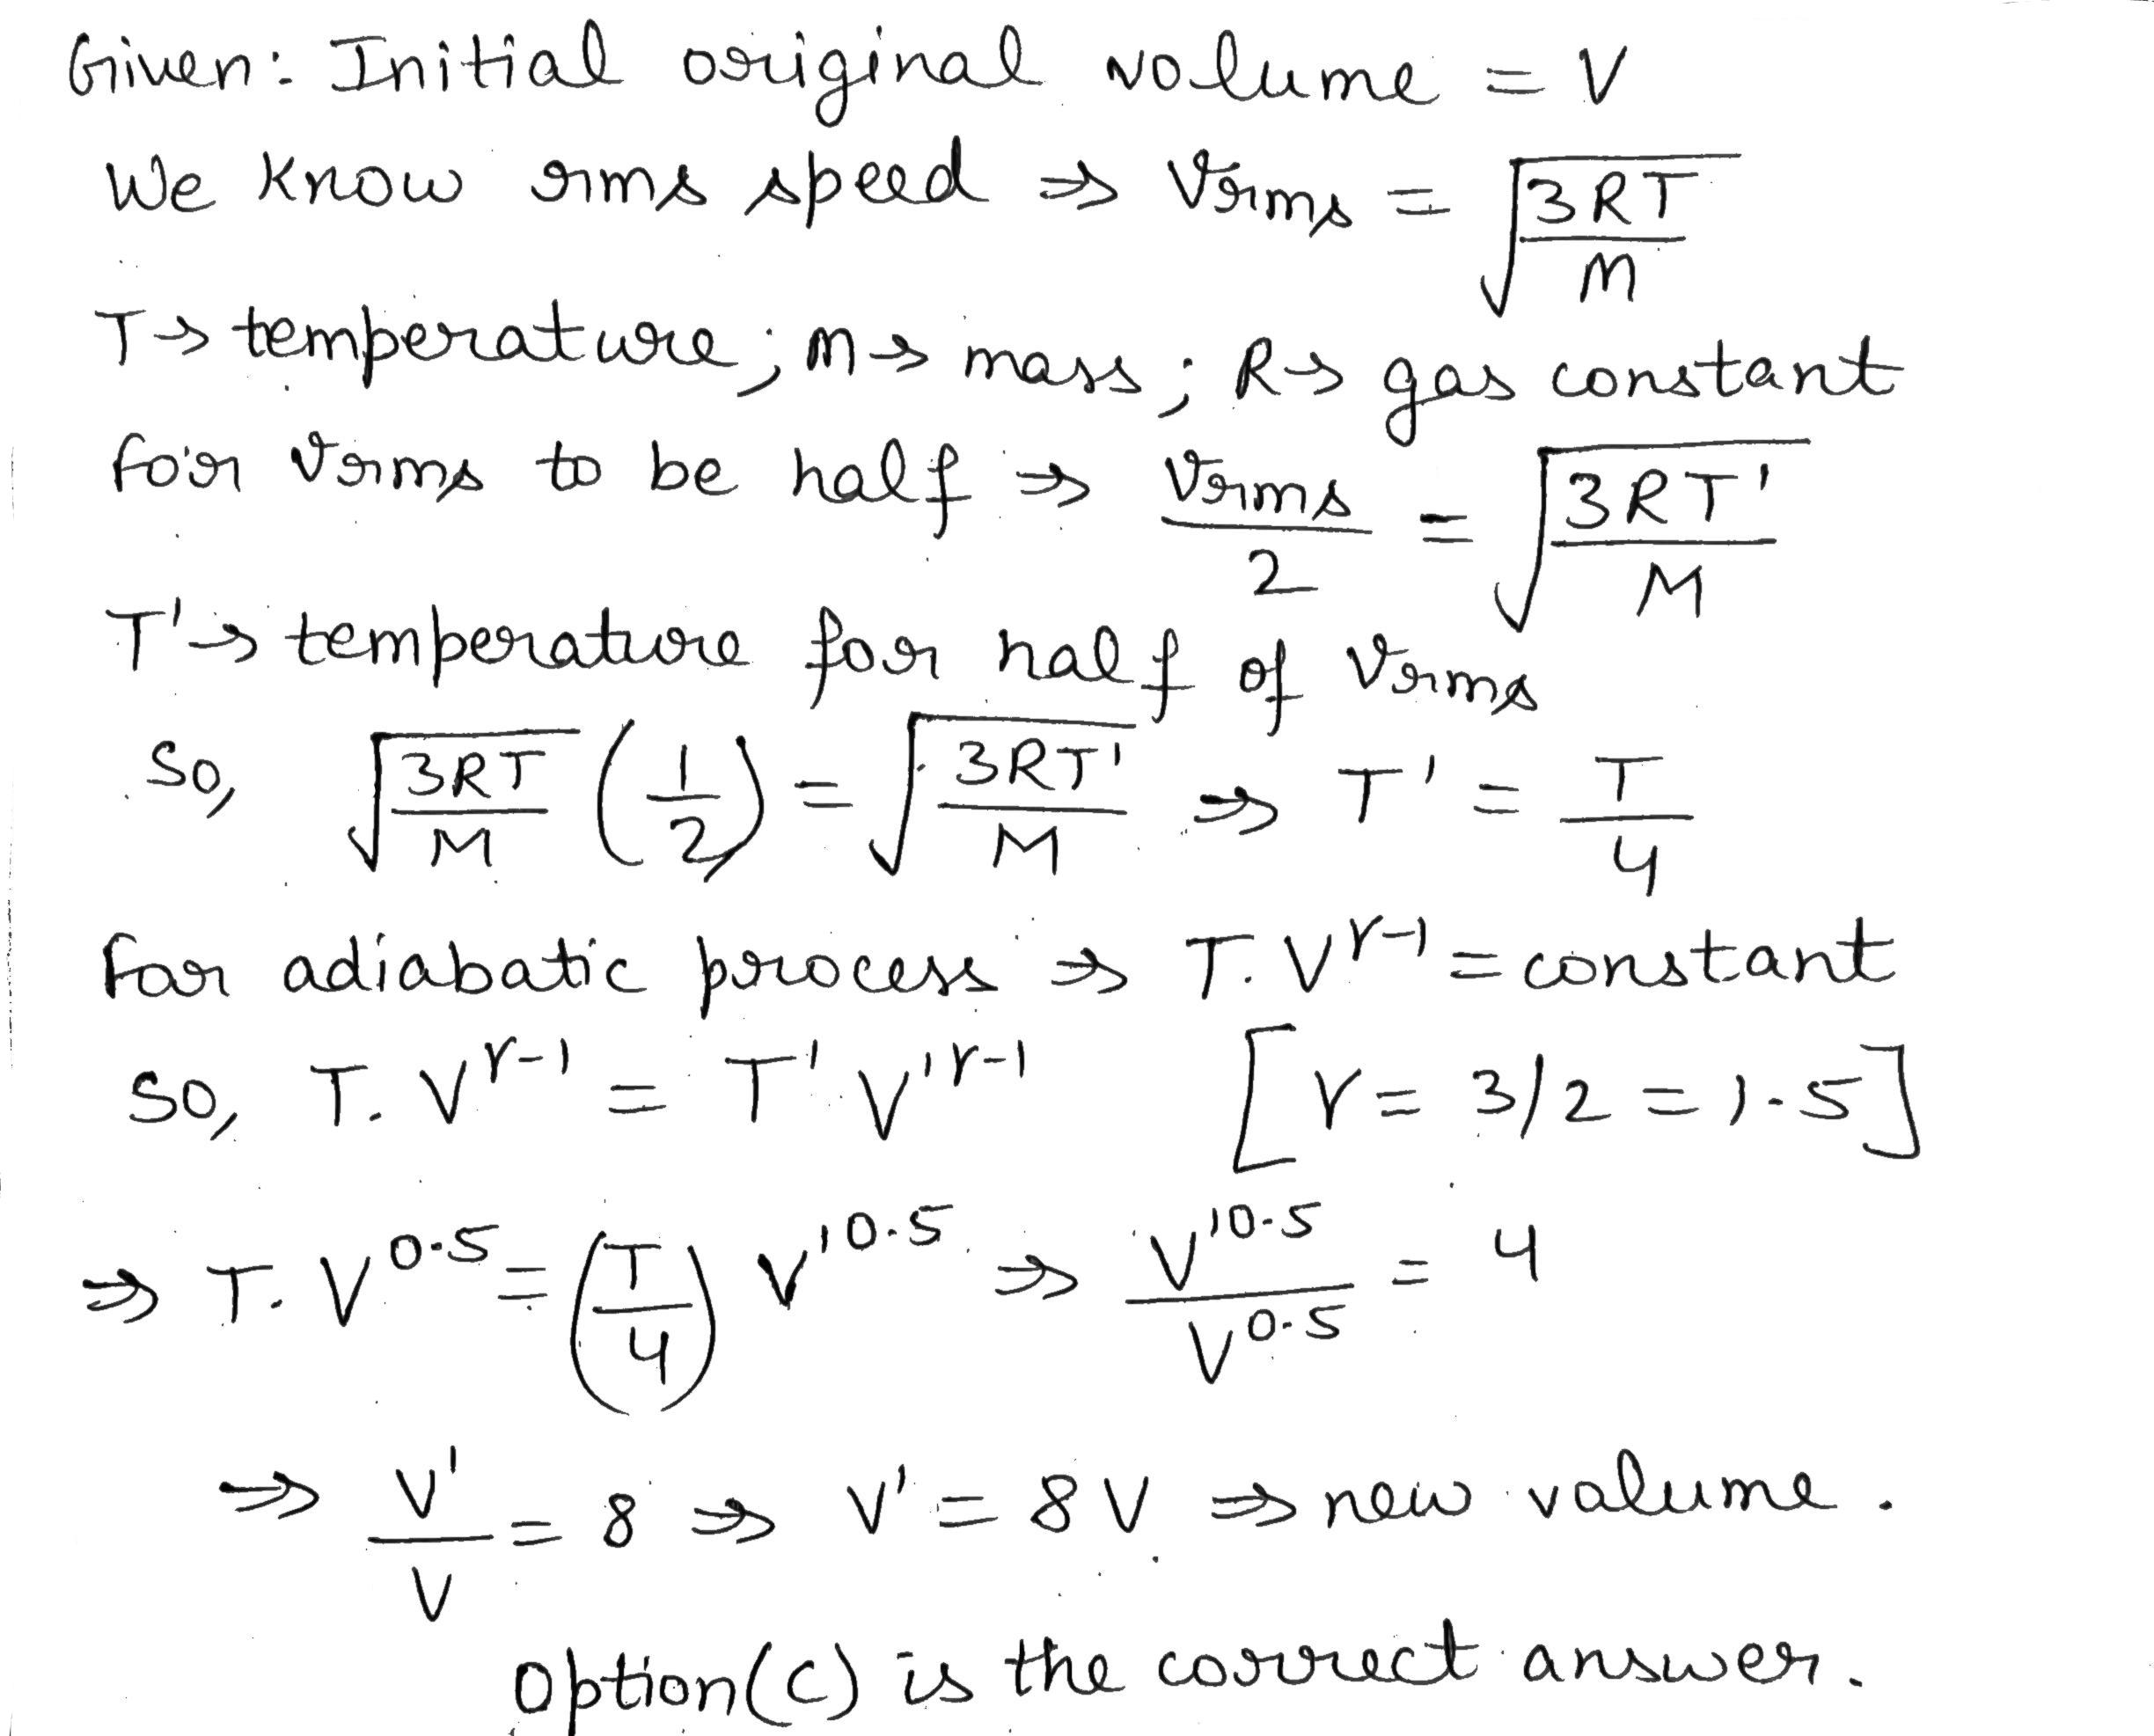 Given: Initial original volume = V
We know rms speed ⇒ Vrms = √(3RT/M)
T → temperature; M → mass; R → gas constant
for Vrms to be half ⇒ Vrms/2 = √(3RT'/M)
T' → temperature for half of Vrms
So, √(3RT/M) (1/2) = √(3RT'/M) ⇒ T' = T/4
For adiabatic process ⇒ T.V^(γ-1) = constant
So, T.V^(γ-1) = T'V'^(γ-1) [γ = 3/2 = 1.5]
⇒ T.V^0.5 = (T/4) V'^0.5 ⇒ V'^0.5/V^0.5 = 4
⇒ V'/V = 8 ⇒ V' = 8V ⇒ new volume.
Option (C) is the correct answer.